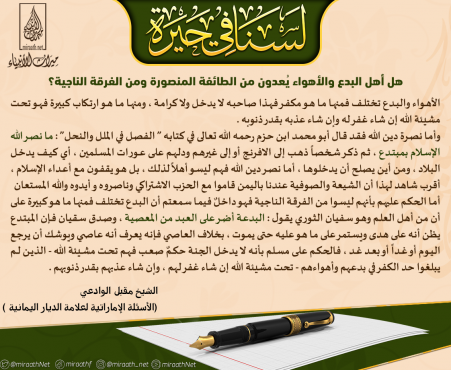 لسنا في حيرة
ميراث الأنبياء
miraath.Net
هل أهل البدع والأهواء يُعدون من الطائفة المنصورة ومن الفرقة الناجية؟
الأهواء والبدع تختلف فمنها ما هو مكفر فهذا صاحبه لا يدخل ولا كرامة ، ومنها ما هو ارتكاب كبيرة فهو تحت
مشيئة الله إن شاء غفر له وإن شاء عذبه بقدر ذنوبه .
وأما نصرة دين الله فقد قال أبو محمد ابن حزم رحمه الله تعالى في كتابه " الفصل في الملل والنحل" : ما نصر الله
الإسلام بمبتدع ، ثم ذكر شخصاً ذهب إلى الافرنج أو إلى غيرهم ودلهم على عورات المسلمين ، أي كيف يدخل
البلاد ، ومن أين يصلح أن يدخلوها ، أما نصر دين الله فهم ليسو أهلاً لذلك ، بل هو يقفون مع أعداء الإسلام ،
أقرب شاهد لهذا أن الشيعة والصوفية عندنا باليمن قاموا مع الحزب الاشتراكي وناصروه و أيدوه والله المستعان
أما الحكم عليهم بأنهم ليسوا من الفرقة الناجية فهو داخل فيما سمعتم أن البدع تختلف فمنها ما هو كبيرة على
أن من أهل العلم وهو سفيان الثوري يقول : البدعة أضر على العبد من المعصية ، وصدق سفيان فإن المبتدع
يظن أنه على هدى ويستمر على ما هو عليه حتى يموت ، بخلاف العاصي فإنه يعرف أنه عاصي ويوشك أن يرجع
اليوم أو غداً أو بعد غد ، فالحكم على مسلم بأنه لا يدخل الجنة حكمٌ صعب فهم تحت مشيئة الله - الذين لم
يبلغوا حد الكفر في بدعهم وأهواءهم - تحت مشيئة الله إن شاء غفر لهم ، وإن شاء عذبهم بقدر ذنوبهم .
الشيخ مقبل الوادعي
(الأسئلة الإماراتية لعلامة الديار اليمانية )
@miraathNet
miraathf
@miraath_net
miraathNet